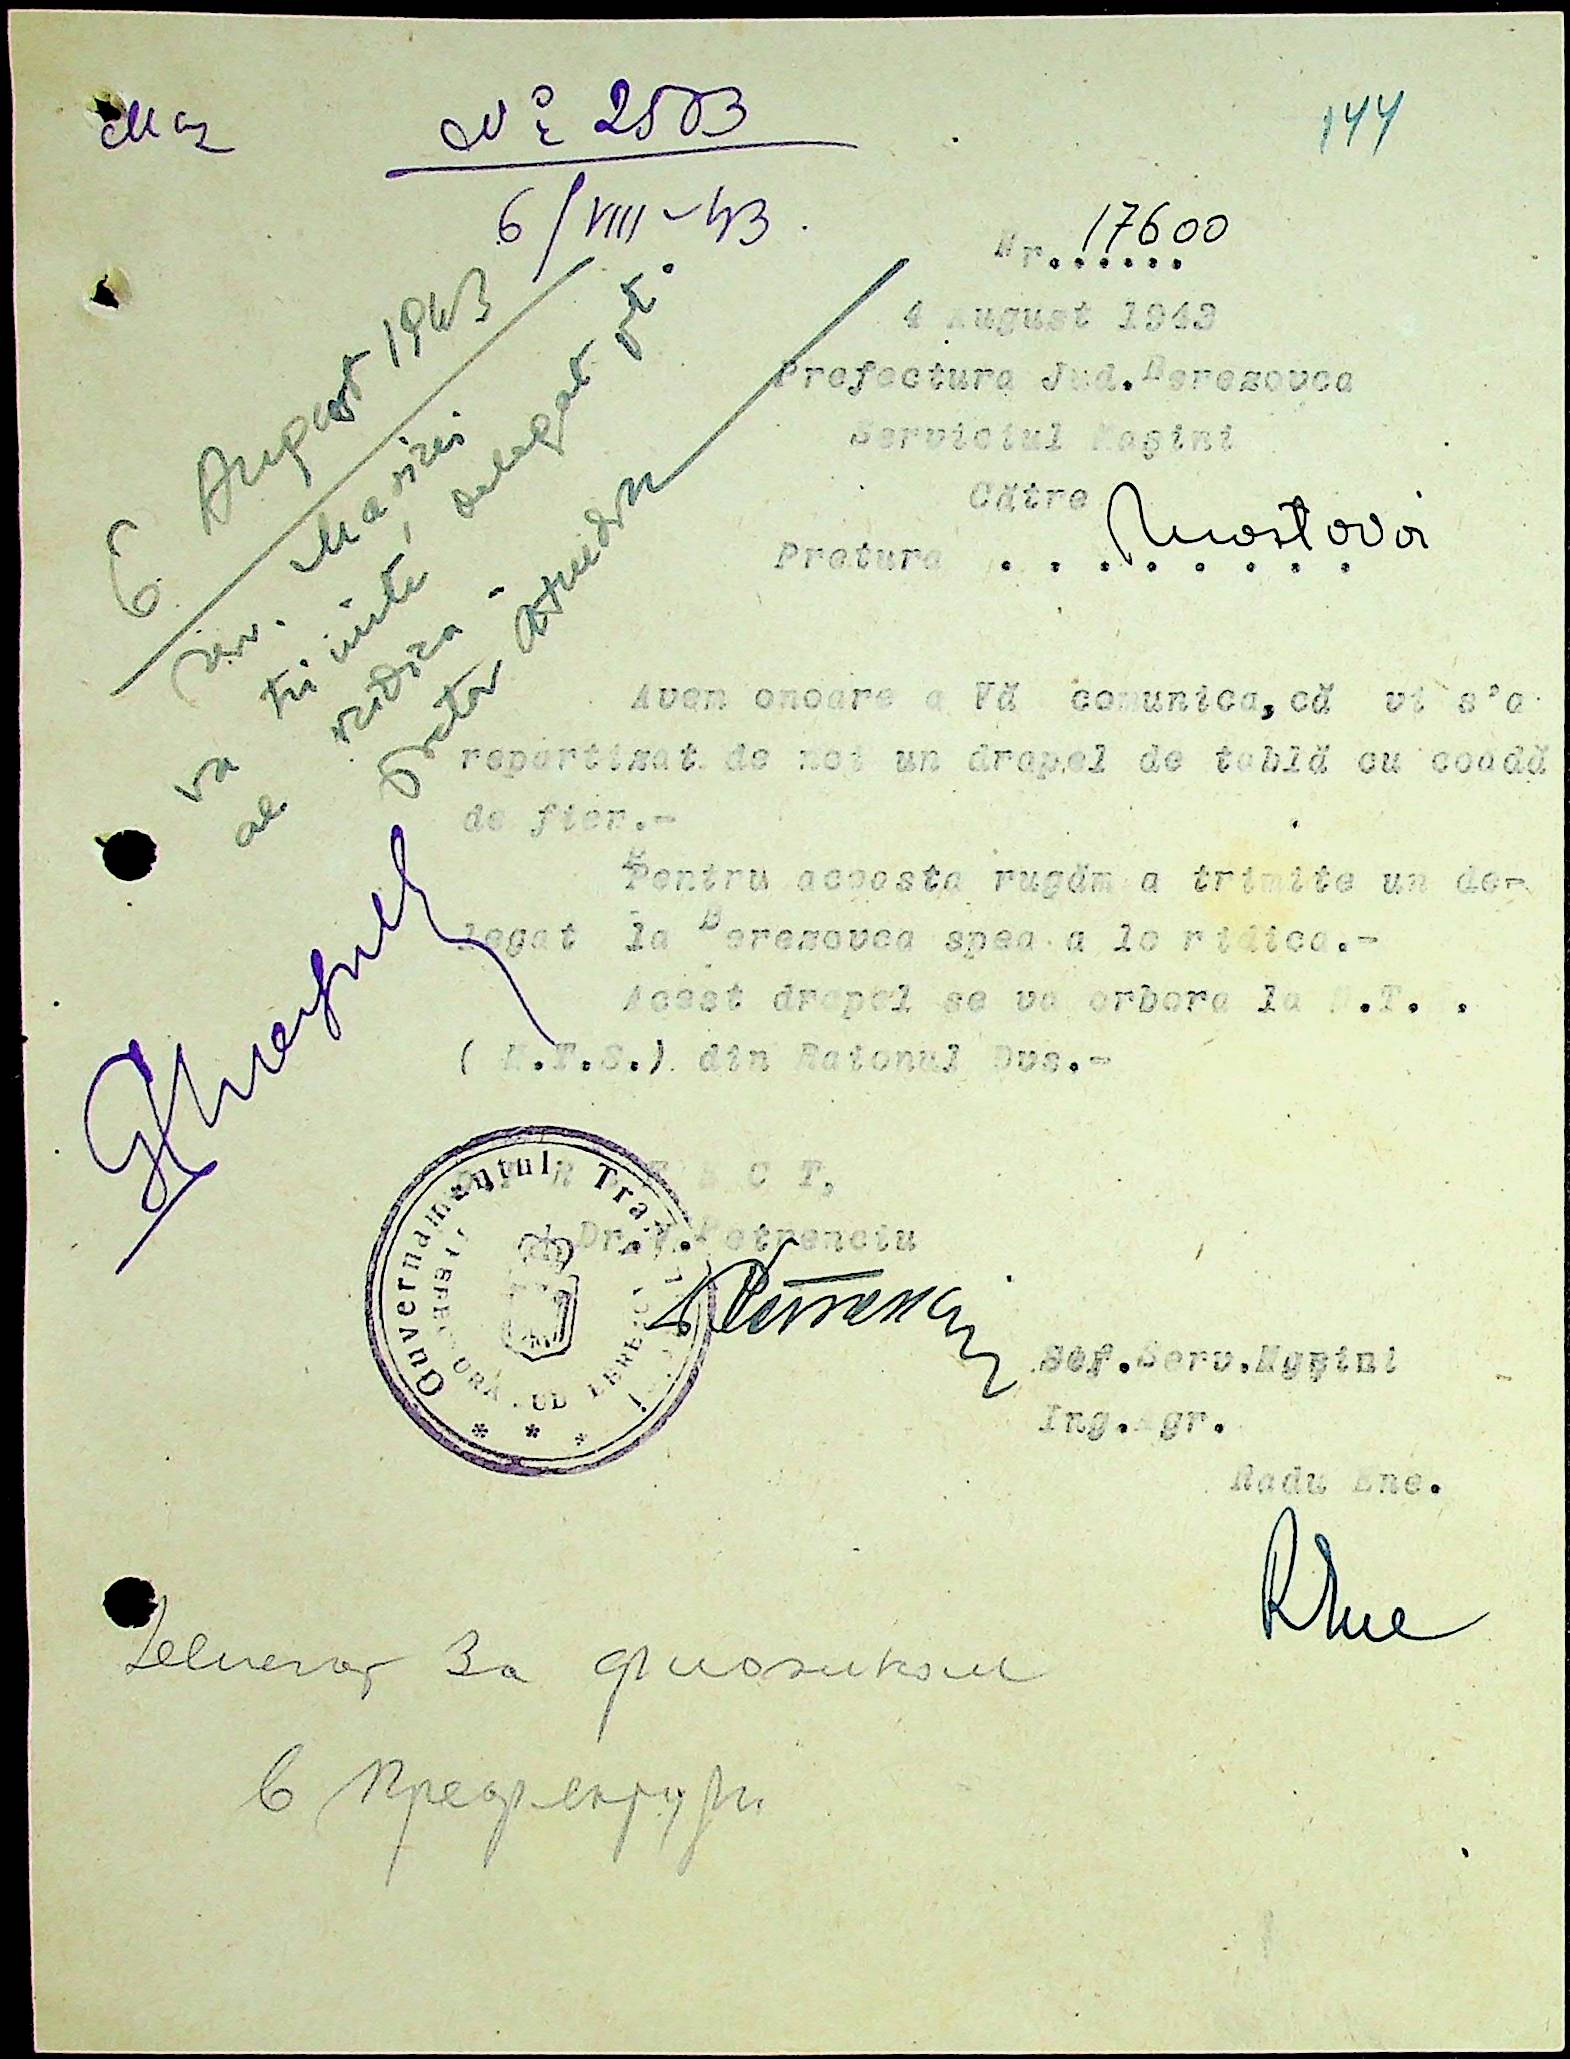 Maz
№ 2503
6/VIII-43.
144
Nr. 17600
4 August 1943
Prefectura Jud. Berezovca
Serviciul Maşini
Către
Pretura Mostovoi
6 August 1943
va trimite, delegat pt.
a ridica.
Pretor
Avem onoare a Vă comunica, că vi s'a
repartizat de noi un drapel de tablă cu coadă
de fier.-
Pentru aceasta rugăm a trimite un de-
legat la Berezovca spea a lo ridica.-
Acest drapel se va arbora la M.T. .
( M.T.S.) din Raionul Dvs.-
P R E F E C T,
Dr. V. Petrenciu
Guvernamantul Tra
PREFECTURA JUD BEREZ
Sef. Serv. Mgşini
Ing. Agr.
Radu Ene.
REne
За
в Префектури